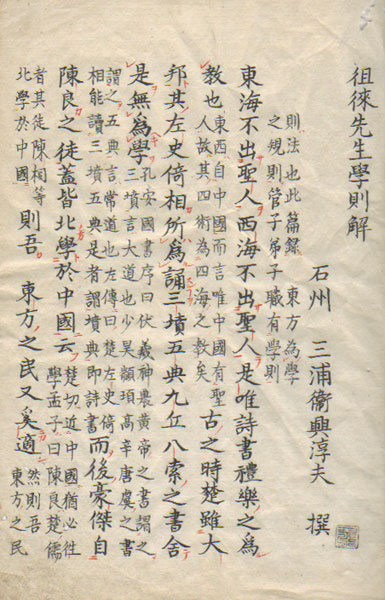 徂徠先生學則解
石州 三浦衞興淳夫 撰
則法也此篇錄 東方為學
之規則管子弟子職有學則
東海不出聖人西海不出聖人是唯詩書禮樂之為
教也
東西自中國而言唯中國有聖
人故其四術為四海之教矣
古之時楚雖大
邦其左史倚相所為誦三墳五典九丘八索之書舍
是無為學
孔安國書序曰伏羲神農黃帝之書謂之
三墳言大道也少昊顓頊高辛唐虞之書
謂之五典言常道也左傳曰楚左史倚
相能讀三墳五典是者謂墳典即詩書
而後豪傑自
陳良之徒蓋皆北學於中國云
楚切近中國猶必徃
學孟子曰陳良楚儒
者其徒陳相等
北學於中國
則吾 東方之民又奚適
然則吾
東方之民